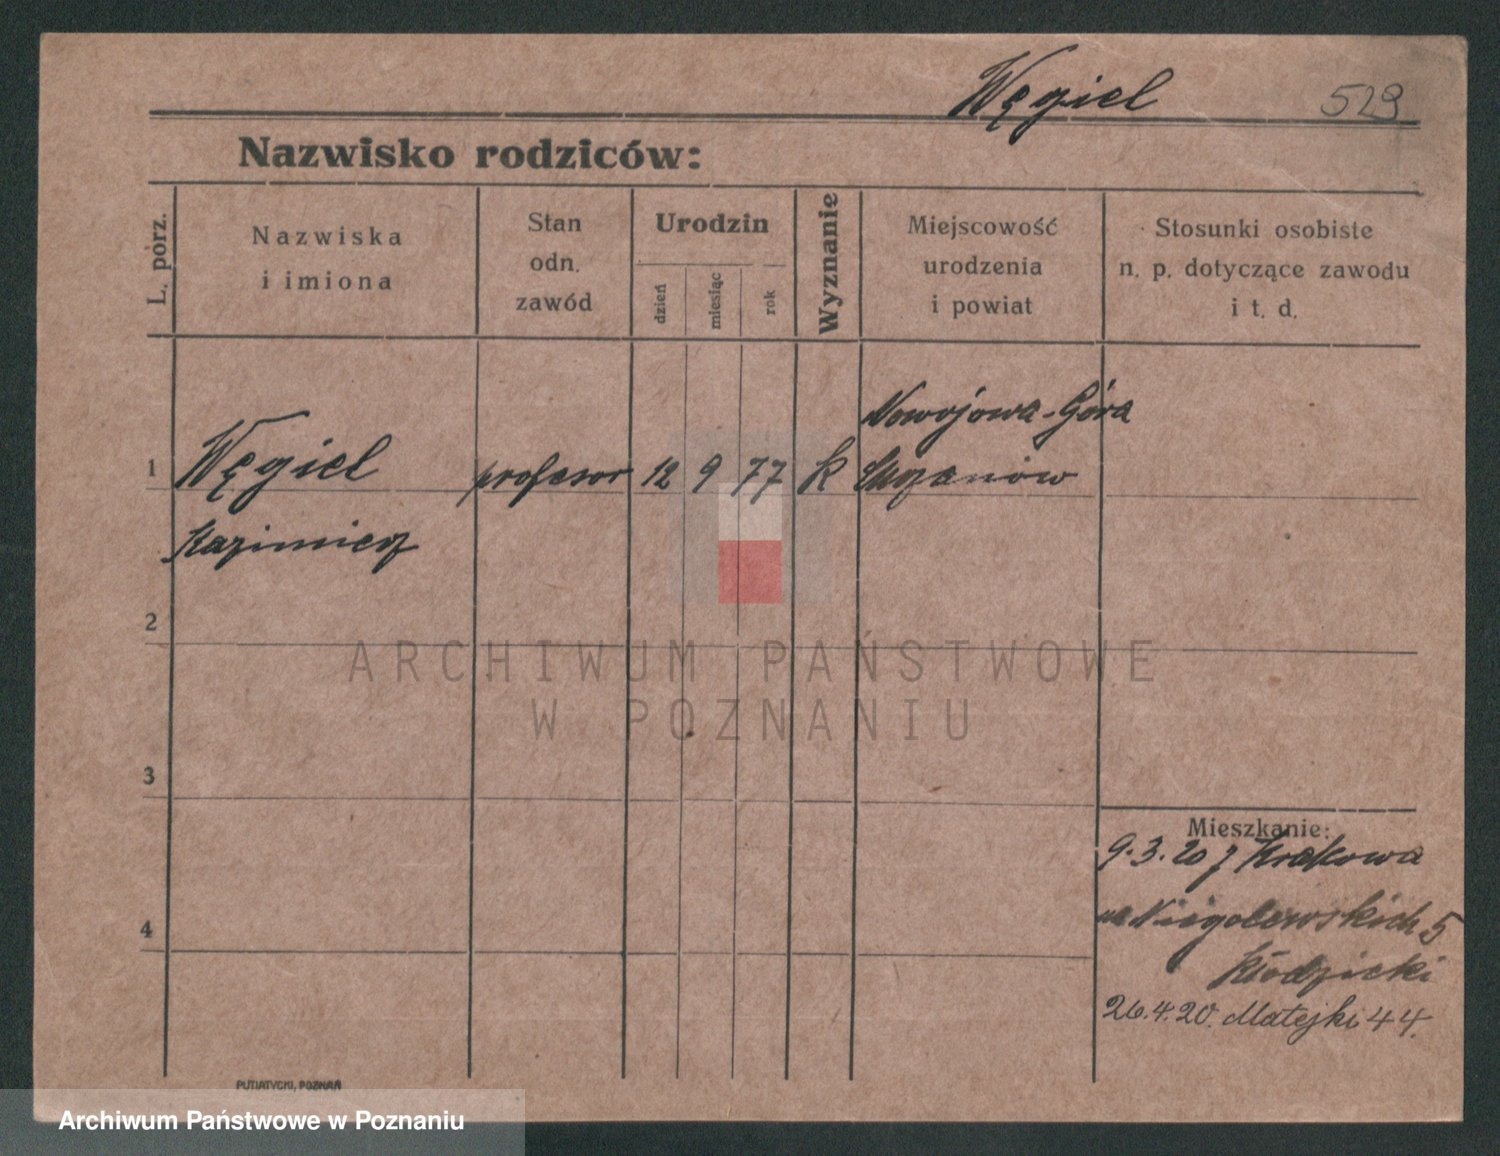 Węgiel 529
Nazwisko rodziców:
L. pórz.
Nazwiska
i imiona
Stan
odn.
zawód
Urodzin
dzień
miesiąc
rok
Wyznanie
Miejscowość
urodzenia
i powiat
Stosunki osobiste
n. p. dotyczące zawodu
i t. d.
Nowojowa-Góra
1 Węgiel profesor 12 9 77 k Chrzanów
Kazimierz
2
3
4
Mieszkanie:
9.3.20 z Krakowa
Niegolewskich 5
Kłodzicki
26.4.20. Matejki 44.
PUTIATYCKI, POZNAŃ
ARCHIWUM PAŃSTWOWE
W POZNANIU
Archiwum Państwowe w Poznaniu